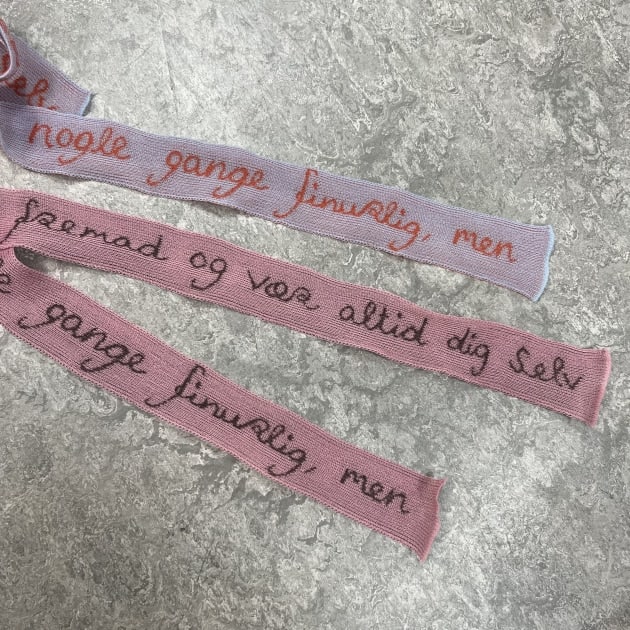 selv
nogle gange finurlig, men
fremad og vær altid dig selv
gange finurlig, men